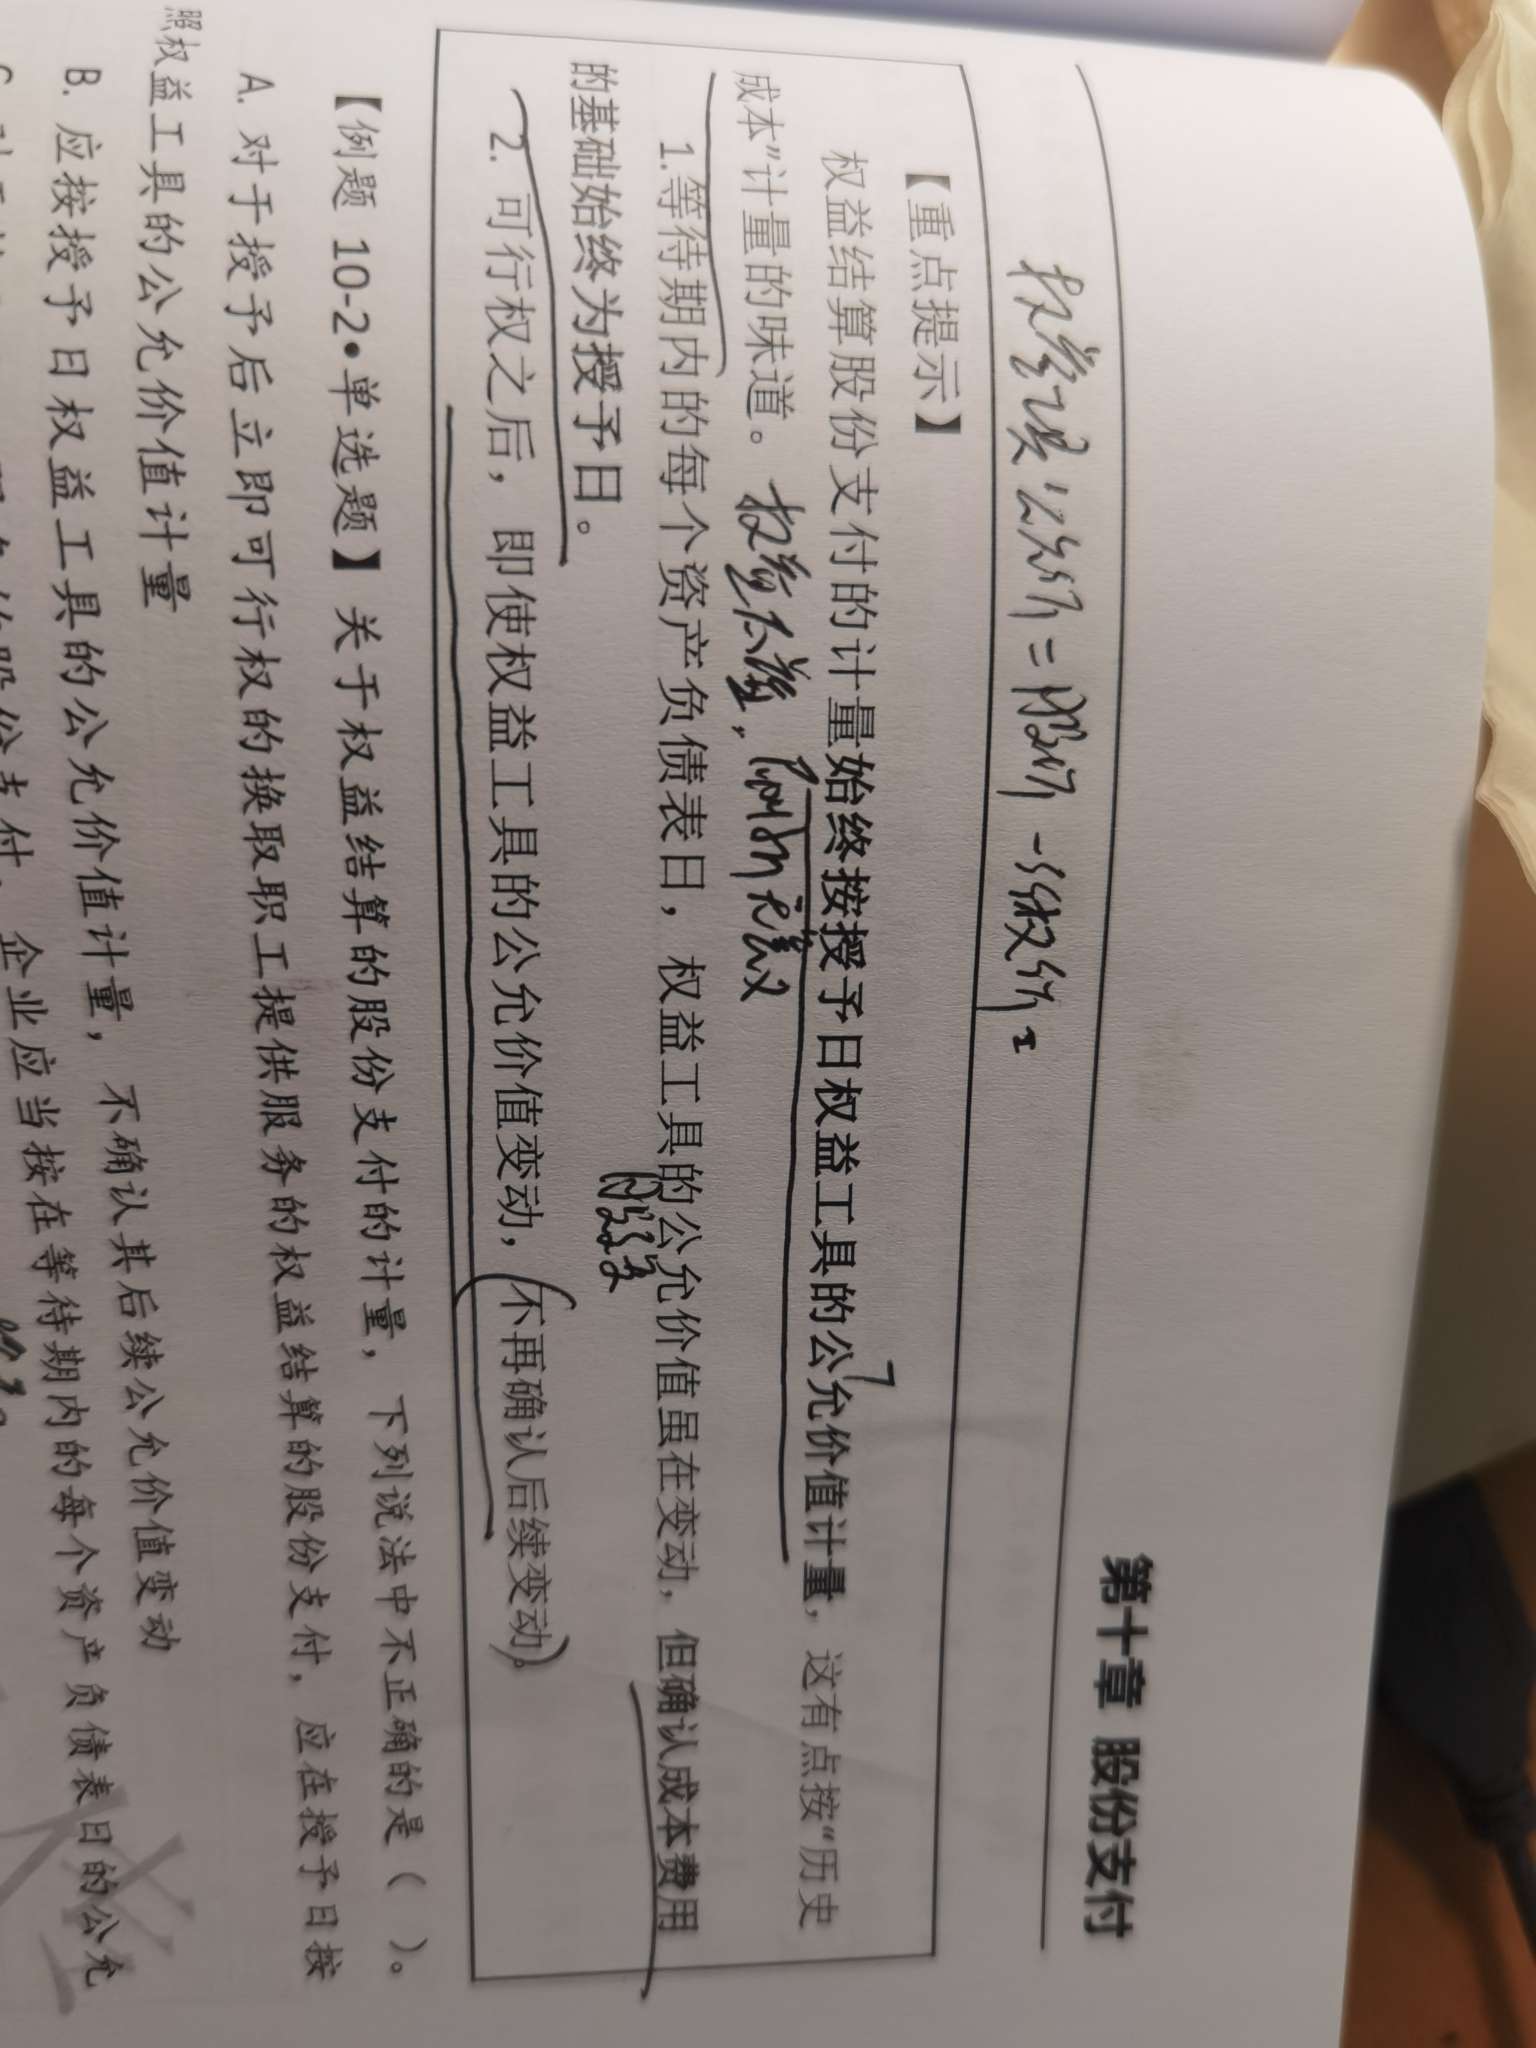 第十章 股份支付
权益工具公允价 = 股价 - 行权价
【重点提示】
权益结算股份支付的计量始终按授予日权益工具的公允价值计量，这有点按“历史
成本”计量的味道。
1.等待期内的每个资产负债表日，权益工具的公允价值虽在变动，但确认成本费用
的基础始终为授予日。
2. 可行权之后，即使权益工具的公允价值变动，（不再确认后续变动）。
【例题 10-2•单选题】关于权益结算的股份支付的计量，下列说法中不正确的是（ ）。
A. 对于授予后立即可行权的换取职工提供服务的权益结算的股份支付，应在授予日按
照权益工具的公允价值计量
B. 应按授予日权益工具的公允价值计量，不确认其后续公允价值变动
企业应当按在等待期内的每个资产负债表日的公允